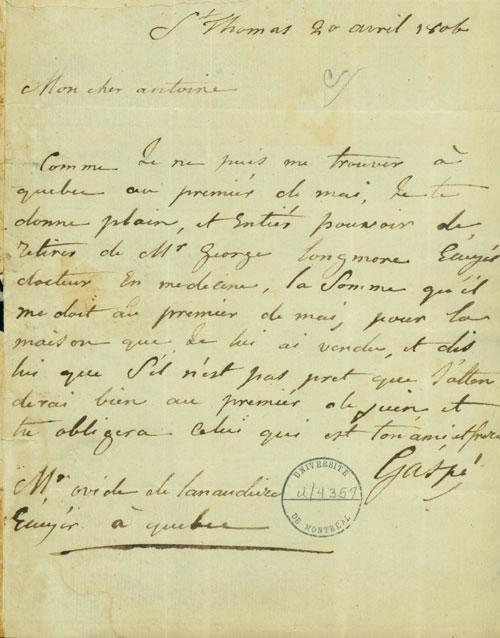 St Thomas 20 avril 1806
Mon cher antoine
Comme Je ne puis me trouver à
quebec au premiér de mai, Je te
donne plain, et Entiér pouvoir de
retirer de Mr George Longmore Ecuyér
docteur En medecine, la Somme qu'il
me doit au premier de mai, pour la
maison que Je lui ai vendu, et dis
lui que S'il n'est pas pret que J'atten
derai bien au premier de juin et
tu obligera Celui qui est ton ami et frere
Gaspé
Mr ovide de Lanaudiere
Ecuyér à quebec
UNIVERSITÉ
DE MONTRÉAL